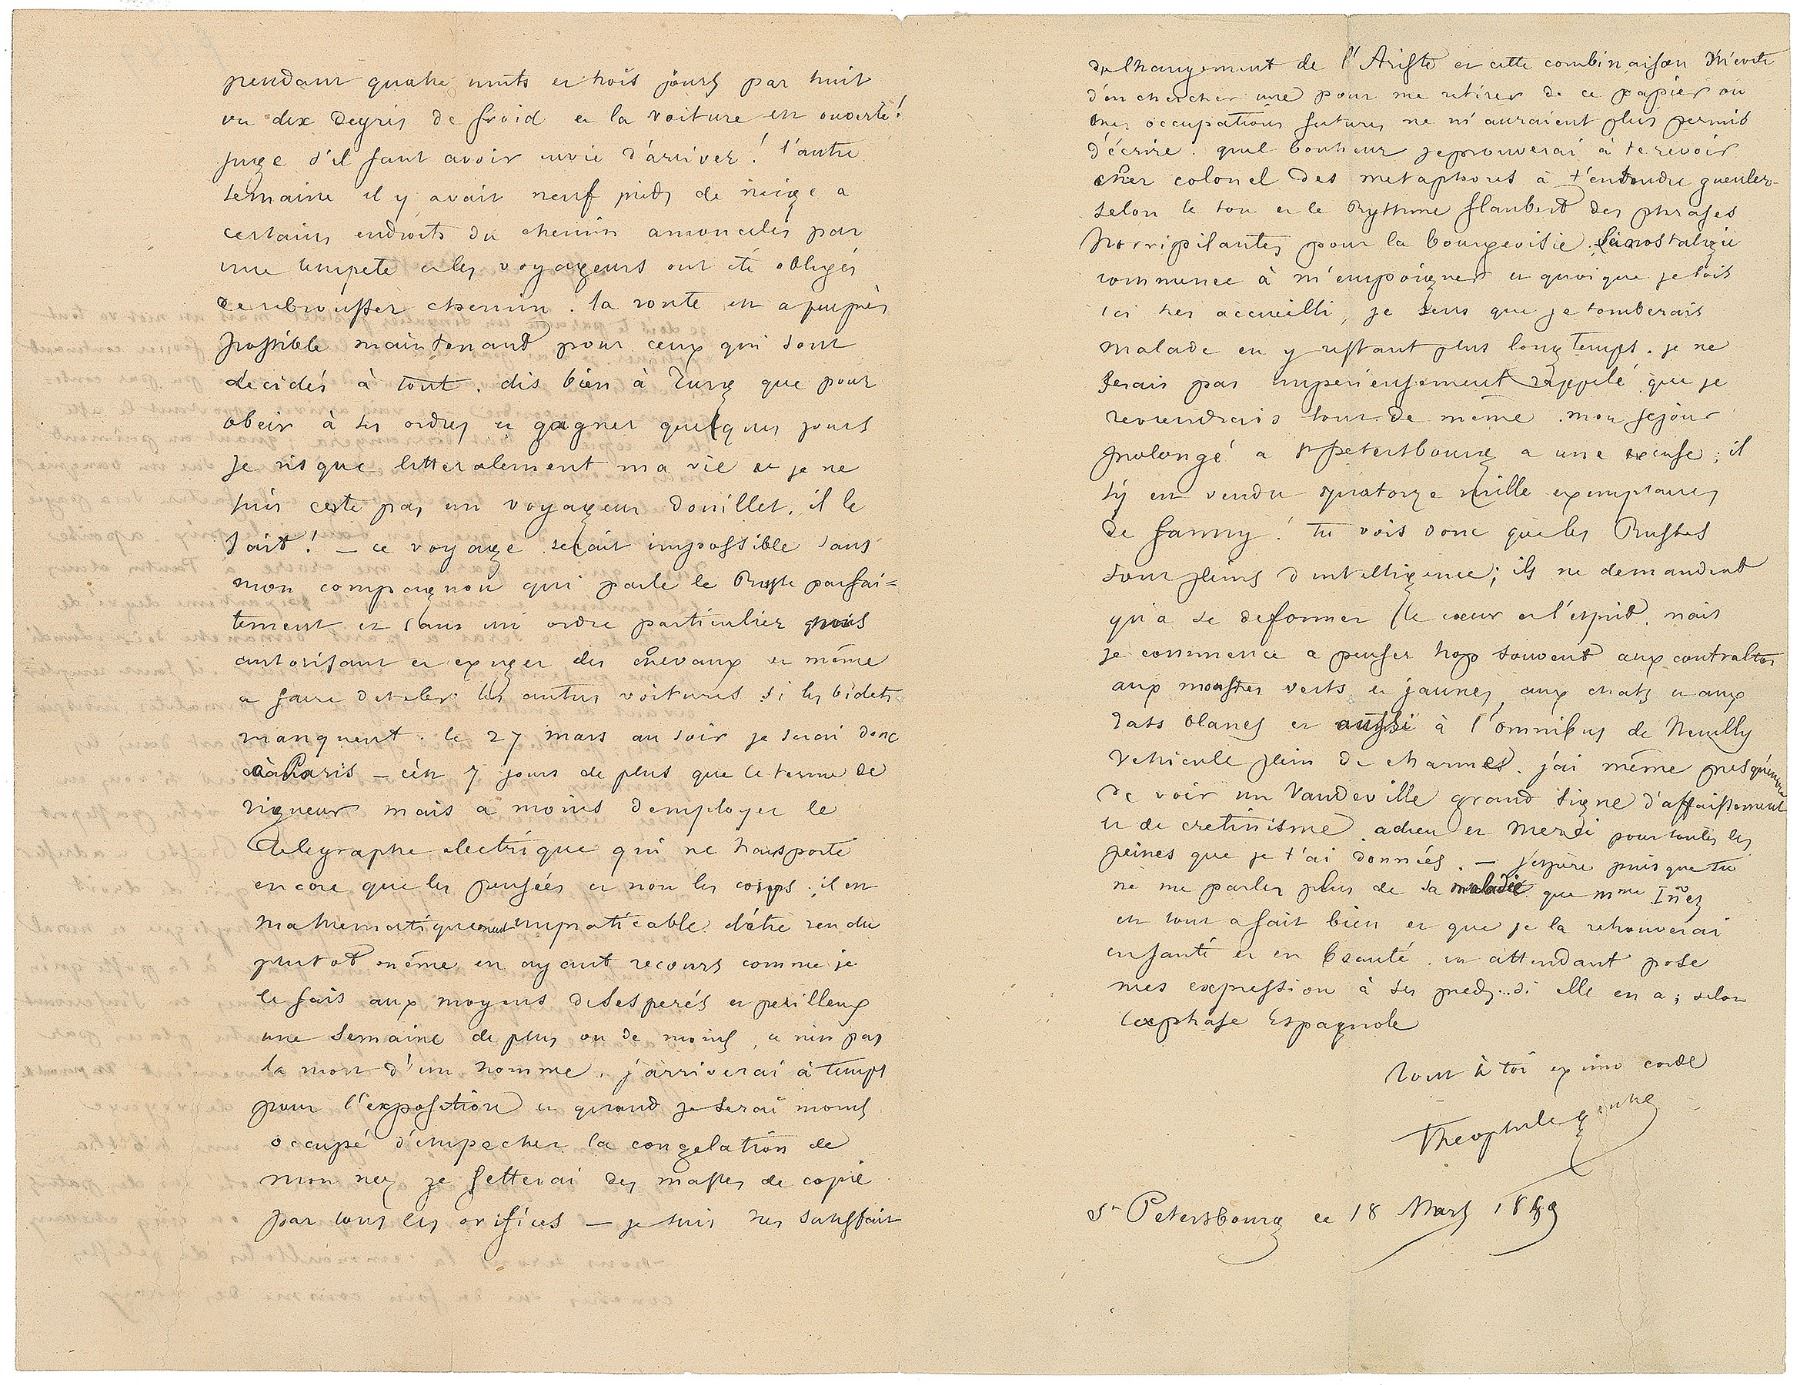 pendant quatre nuits et trois jours par huit
ou dix degrés de froid et la voiture est ouverte!
juge s'il faut avoir envie d'arriver! l'autre
semaine il y avait neuf pieds de neige a
certains endroits du chemin amoncelés par
une tempete et les voyageurs ont été obligés
de rebrousser chemin. la route est a peu près
possible maintenant pour ceux qui sont
decidés à tout. dis bien à Turg que pour
obeir à ses ordres et gagner quelques jours
je risque litteralement ma vie et je ne
suis certe pas un voyageur douillet. il le
sait! — ce voyage serait impossible sans
mon compagnon qui parle le Russe parfai=
tement et sans un ordre particulier nous
autorisant a exiger des chevaux et même
a faire dételer les autres voitures si les bidets
manquent. le 27 mars au soir je serai donc
à Paris — c'est 7 jours de plus que le terme de
rigueur mais a moins d'employer le
telegraphe electrique qui ne transporte
encore que les pensées et non les corps, il est
mathematiquement impraticable d'être rendu
plutot même en ayant recours comme je
le fais aux moyens desesperés et perilleux
une semaine de plus ou de moins, ce n'est pas
la mort d'un homme. j'arriverai à temps
pour l'exposition et quand je serai moins
occupé d'empecher la congelation de
mon nez je jetterai des masses de copie
par tous les orifices — je suis tres satisfait
du changement de l'Artiste et cette combinaison m'evite
d'en chercher une pour me retirer de ce papier ou
mes occupations futures ne m'auraient plus permis
d'écrire. quel bonheur j'eprouverai à te revoir
cher colonel des metaphores à t'entendre gueuler
selon le ton et le Rythme flaubert des phrases
horripilantes pour la bourgeoisie. la nostalgie
commence à m'empoigner et quoique je sois
ici tres accueilli, je sens que je tomberais
malade en y restant plus long temps. je ne
serais pas imperieusement rappelé que je
reviendrais tout de même. mon sejour
prolongé a St Petersbourg a une excuse; il
s'y est vendu quatorze mille exemplaires
de fanny! tu vois donc que les Russes
sont pleins d'intelligence; ils ne demandent
qu'a se deformer le cœur et l'esprit. mais
je commence a penser trop souvent aux contraltos
aux monstres verts et jaunes, aux chats et aux
rats blancs et aussi à l'omnibus de Neuilly
vehicule plein de charmes. j'ai même presqu'envie
de voir un Vaudeville grand signe d'affaissement
et de cretinisme. adieu et merci pour toutes les
peines que je t'ai données. — j'espère puisque tu
ne me parles plus de sa maladie que mme Iñez
est tout a fait bien et que je la retrouverai
en santé et en beauté. en attendant pose
mes expression à ses pieds.. si elle en a; selon
la phrase Espagnole
tout à toi ex imo corde
Theophile Gautier
St Petersbourg ce 18 Mars 1859